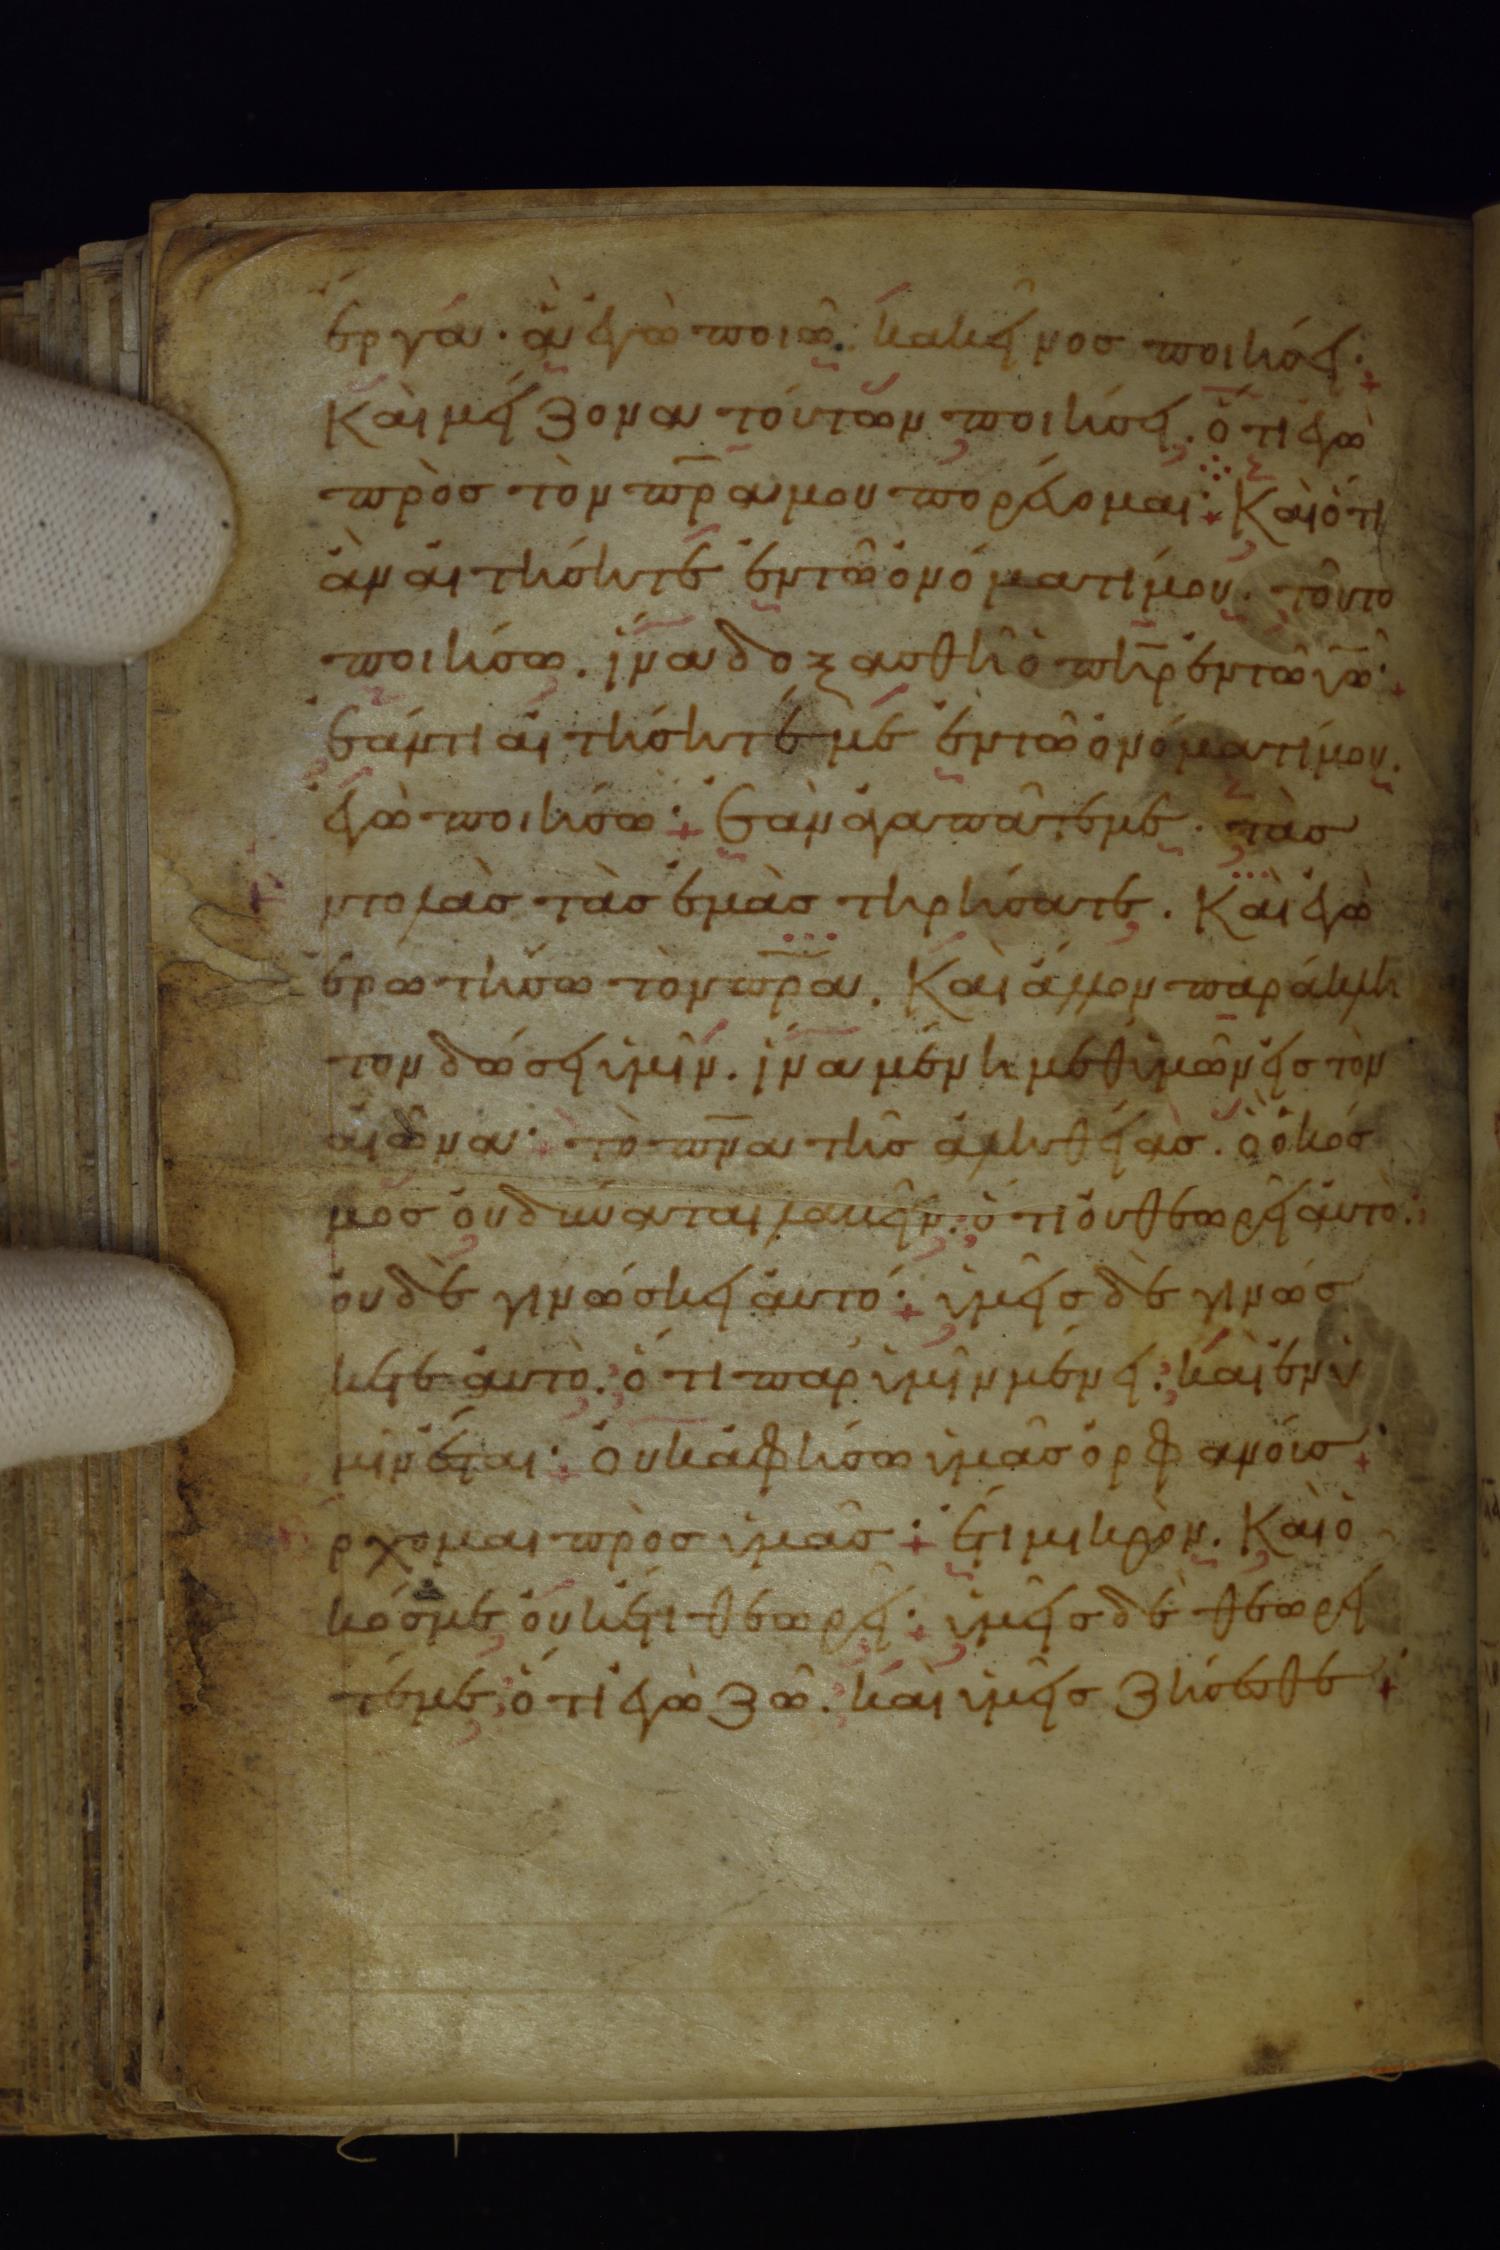 ἔργα. ἃ ἐγὼ ποιῶ. κακεῖνος ποιήσει.
Καὶ μείζονα τούτων ποιήσει. ὅτι ἐγὼ
πρὸς τὸν πρ̅α μου πορεύομαι. Καὶ ὅτι
ἂν αἰτήσητε ἐν τῶ ὀνόματί μου. τοῦτο
ποιήσω. ἵνα δοξασθῆ ὁ πη̅ρ ἐν τῶ υι̅ω.
ἐάν τι αἰτήσητέ με ἐν τῶ ὀνόματί μου.
ἐγὼ ποιήσω. ἐὰν ἀγαπᾶτέ με. τὰς
ντολὰς τὰς ἐμὰς τηρήσατε. Καὶ ἐγὼ
ἐρωτήσω τὸν πρ̅α. Καὶ ἄλλον παράκλη
τον δώσει ὑμῖν. ἵνα μένη μεθ ὑμῶν εἰς τὸν
αἰῶνα. τὸ πν̅α τῆς ἀληθείας. ὃ ὁ κόσ
μος οὐ δύναται λαβεῖν. ὅτι οὐ θεωρεῖ ἀυτὸ.
ὀυδὲ γινώσκει ἀυτό. ὑμεῖς δὲ γινώσ
κετε ἀυτὸ. ὅτι παρ ὑμῖν μένει. καὶ ἐν ὑ
μῖν ἔσται. Ὀυκ ἀφήσω ὑμᾶς ὀρφανούς
ρχομαι πρὸς ὑμᾶς. ἔτι μικρὸν. Καὶ ὁ
κόσμε ὀυκέτι θεωρεῖ. ὑμεῖς δὲ θεωρεῖ
τέ με. ὅτι ἐγὼ ζῶ. καὶ ὑμεῖς ζήσεσθε